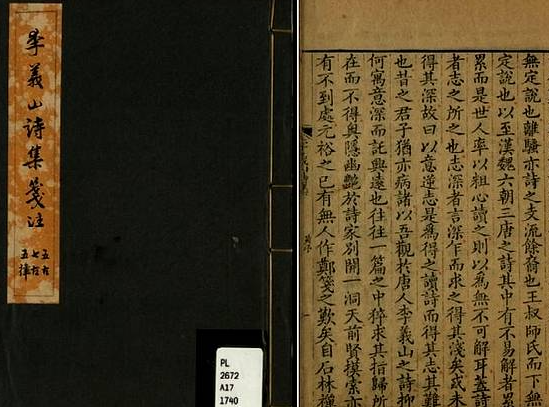 李義山詩集箋注
五古
七古
五律
PL
2672
A17
1740
無定說也離騷亦詩之支流餘裔也王叔師氏而下無
定說也以至漢魏六朝三唐之詩其中有不易解者累
累而是世人率以粗心讀之則以爲無不可解耳蓋詩
者志之所之也志深者言深乍而求之得其淺矣或未
得其深故曰以意逆志是爲得之讀詩而得其志其難
也昔之君子猶亦病諸以吾觀於唐人李義山之詩抑
何寓意深而託興遠也往往一篇之中猝求其指歸所
在而不得奧隱幽艷於詩家別開一洞天前賢摸索亦
有不到處元裕之已有無人作鄭箋之歎矣自石林禪